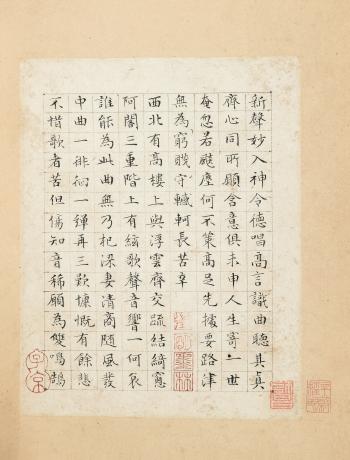 新聲妙入神令德唱高言識曲聽其真
齊心同所願含意俱未申人生寄一世
奄忽若飈塵何不策高足先據要路津
無為窮賤守轗軻長苦辛
西北有高樓上與浮雲齊交疏結綺窻
阿閣三重階上有絃歌聲音響一何哀
誰能為此曲無乃杞梁妻清商隨風發
中曲一徘徊一彈再三歎慷慨有餘悲
不惜歌者苦但傷知音稀願為雙鳴鵠
子京